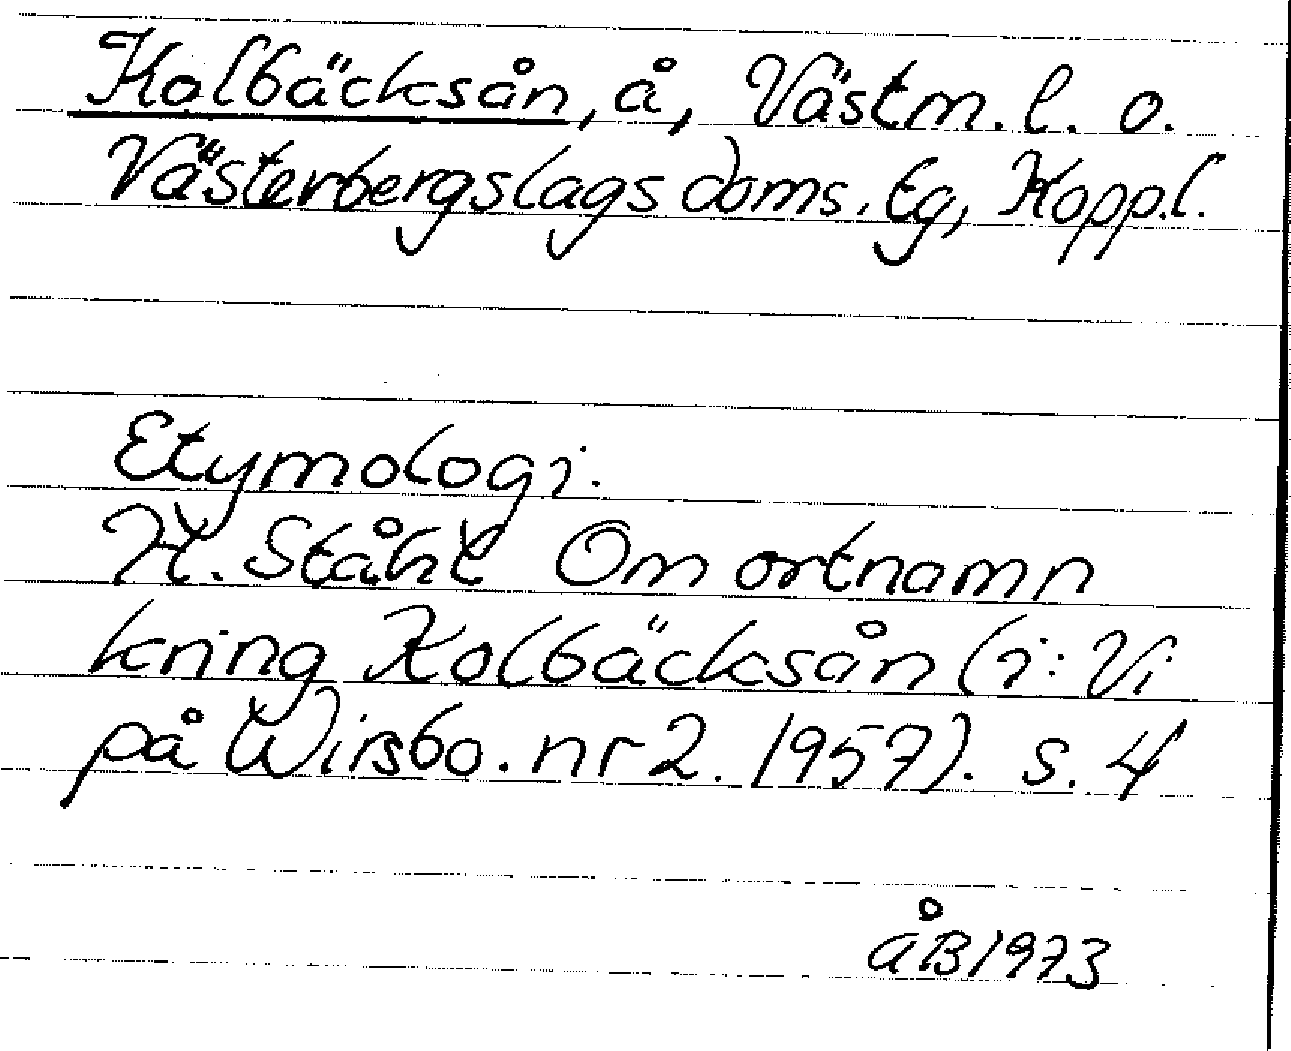 Kolbäcksån, å, Västm. l. o.
Västerbergslags doms. tg, Kopp.l.
Etymologi.
H. Ståhl Om ortnamn
kring Kolbäcksån (i: Vi
på Wirsbo. nr 2. 1957). s. 4
ÅB 1973